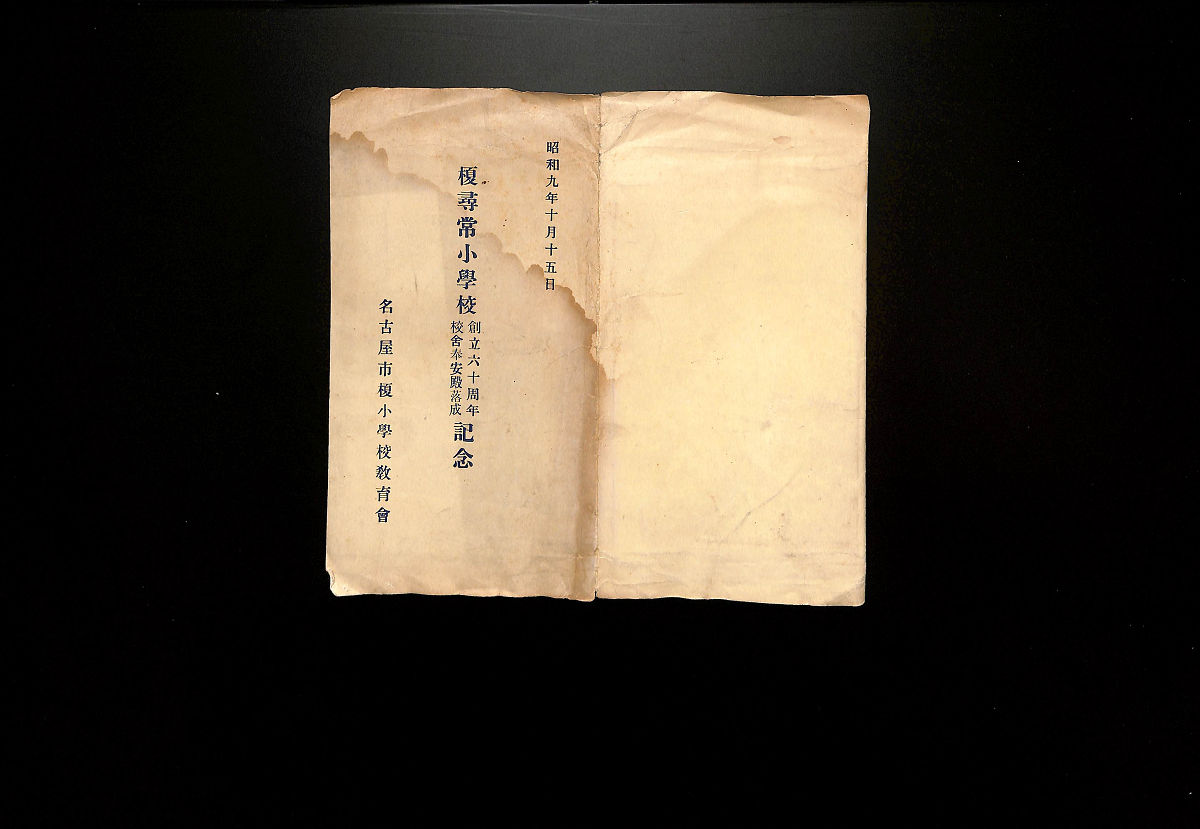 昭和九年十月十五日
榎尋常小學校
創立六十周年
校舍奉安殿落成
記念
名古屋市榎小學校教育會